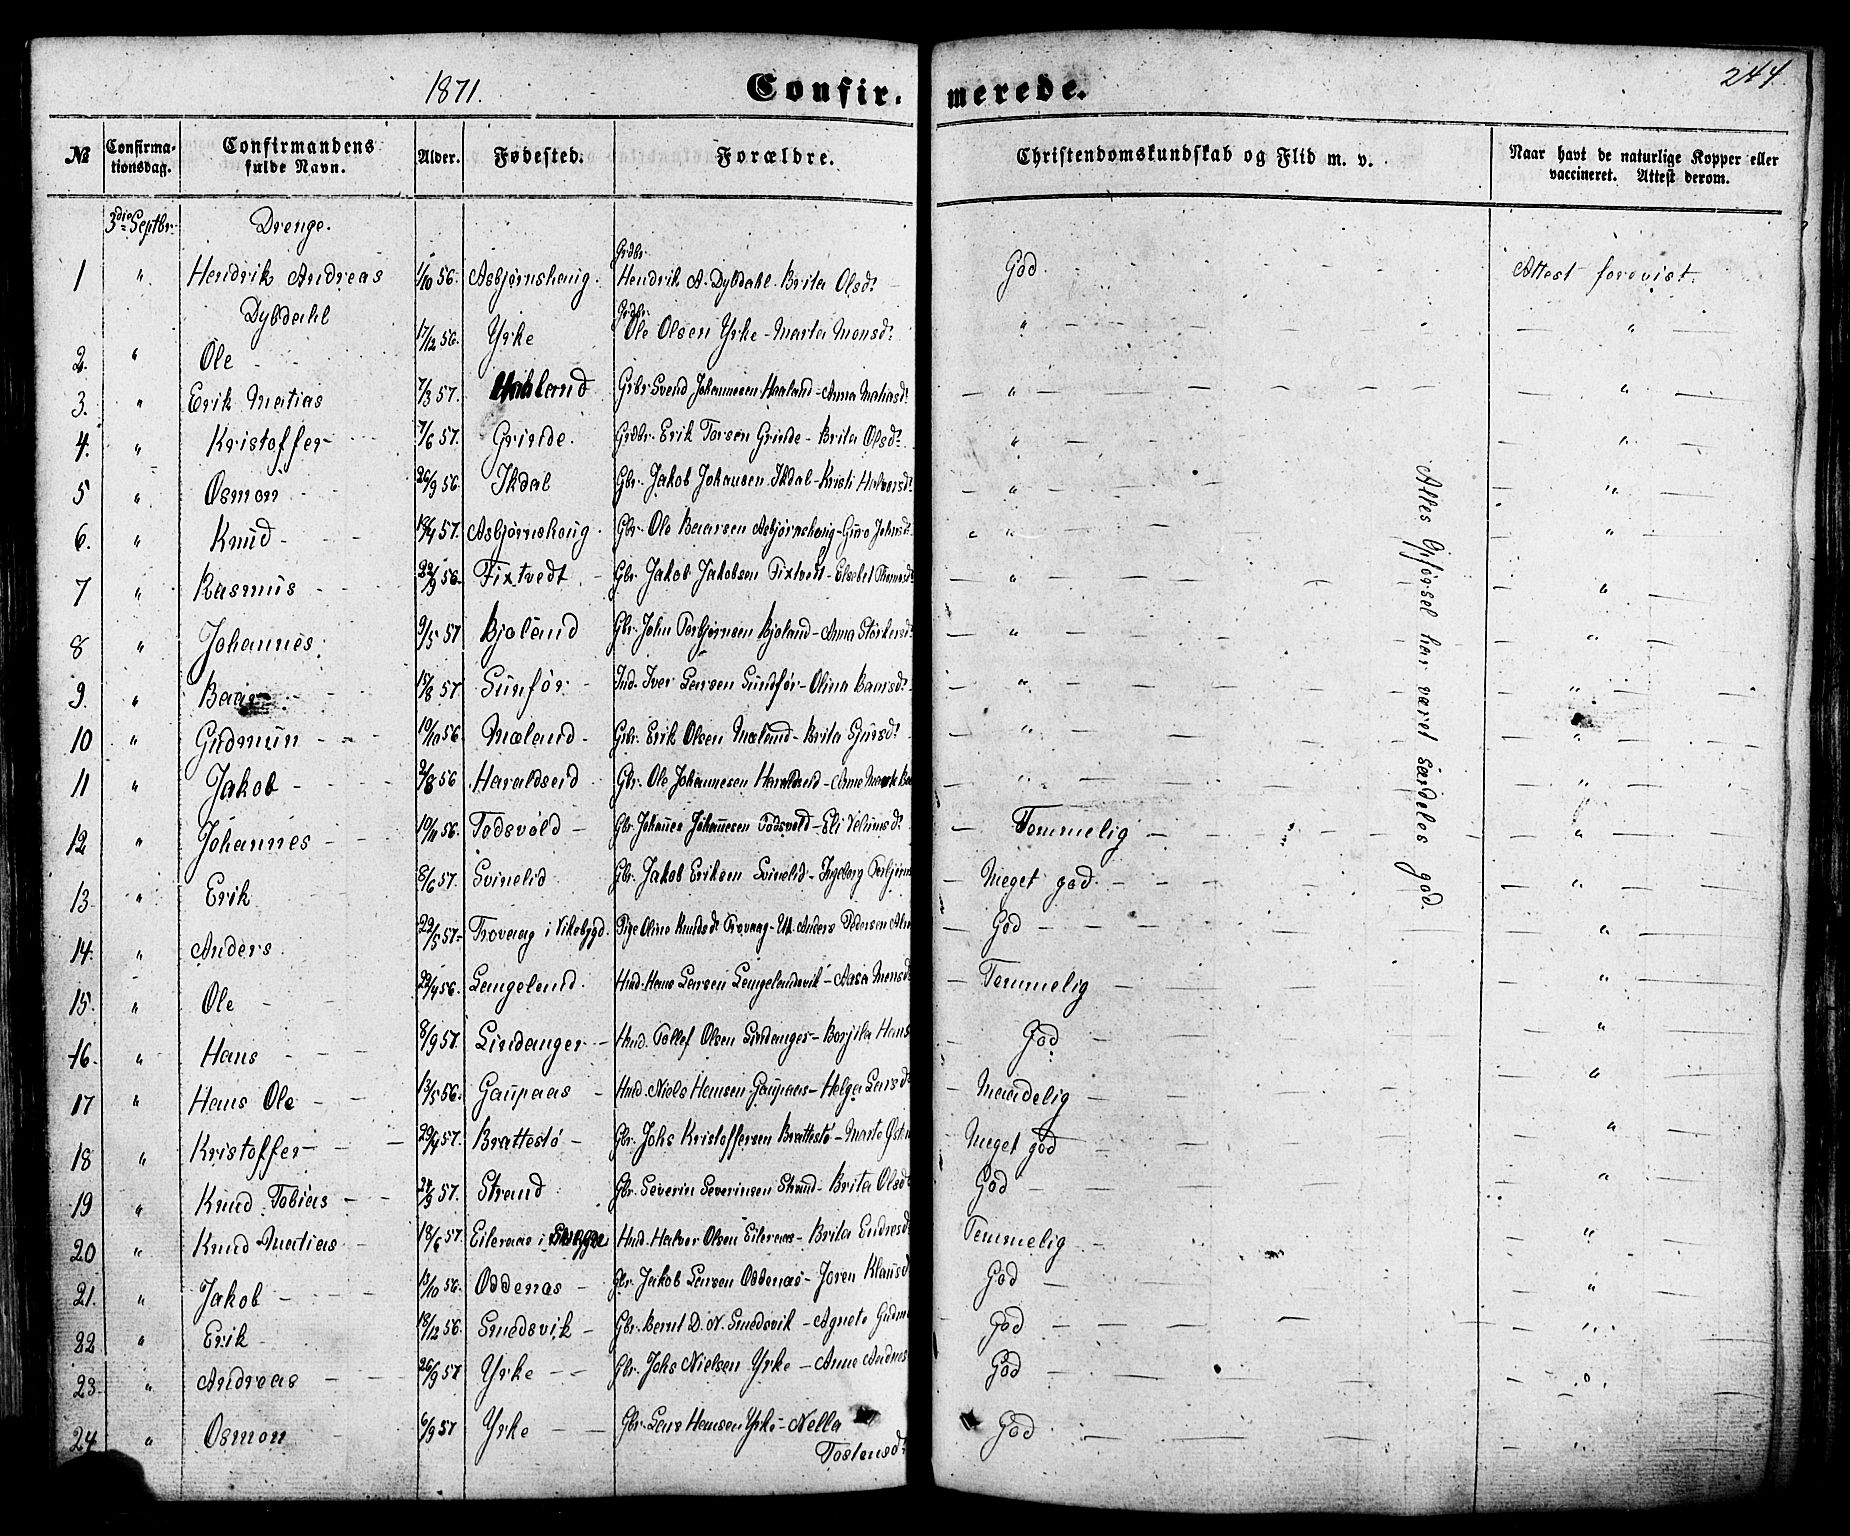 1871. Confir. merede. 244
№ Confirma-tionsdag. Confirmandens fulde Navn. Alder. Fødested. Forældre. Christendomskundskab og Flid m. v. Naar havt de naturlige Kopper eller vaccineret. Attest derom.
3die Septbr. Drenge.
1 " Hendrik Andreas Dybdahl 1/10 56. Asbjørnshaug. Grdbr. Hendrik A. Dybdahl - Brita Olsdr. God. Attest forevist.
2. " Ole 17/12 56. Yrke Grdbr. Ole Olsen Yrke - Marta Monsdr. " "
3. " Erik Matias 7/3 57. Grbr Svend Johannesen Haaland - Anna Matiasdr. " "
4. " Kristoffer 7/6 57. Grinde. Grdbr. Erik Torsen Grinde - Brita Olsdr. " "
5 " Osmon 26/9 56 Ikdal Gbr. Jakob Johansen Ikdal - Kristi Halvorsdr. " "
6. " Knud 18/4 57. Asbjørnshaug. Gbr. Ole Baarsen Asbjørnshaug - Guro Johnsdr. " "
7 " Rasmus 22/9 56. Tixtvedt Gbr. Jakob Jakobsen Tixtvedt - Elsebet Thomasdr. " "
8 " Johannes. 9/5 57 Bjoland Gbr. John Torbjørnsen Bjoland - Anna Størkersdr. " "
9. " Baar 15/8 57. Sunfør Ind. Iver Larsen Sundfør - Olina Baarsdr. " "
10 " Gudmun 19/10 56 Mæland Gbr. Erik Olsen Mæland - Brita Sjursdr. " "
11 " Jakob 2/8 56 Haraldseid Gbr. Ole Johannesen Haraldseid - Anne Marta " "
12 " Johannes 19/11 56. Todsvold Gbr. Johannes Johannesen Todsvold - Eli Velumsdr. Temmelig "
13 " Erik 8/6 57. Svinelid Gbr. Jakob Eriksen Svinelid - Ingeborg Meget god. "
14. " Anders 22/5 57 Trovaag i Vikebygd. Pige Oline Knudsdr Trovaag - Uk. Anders Pedersen God "
15. " Ole 22/4 56. Langeland. Hmd. Hans Larsen Langelandsvik - Aasa Monsdr. Temmelig "
16. " Hans 8/9 57. Lindanger Hmd. Tollef Olsen Lindanger - Borjila Hans God "
17 " Hans Ole 13/5 56. Gaupaas Hmd. Niels Hansen Gaupaas - Helga Larsdr Maadelig "
18 " Kristoffer 29/4 57. Brattestø Gbr. Johs Kristoffersen Brattestø - Marta Meget god "
19 " Knud Tobias 24/9 57. Strand Gbr. Severin Severinsen Strand - Brita Olsdr God "
20 " Knud Matias 18/6 57 Eileraas i Skjold Hmd. Halvor Olsen Eileraas - Brita Endresd Temmelig "
21. " Jakob 13/10 56. Oddenas Gbr. Jakob Larsen Oddenas - Joren Klausd God "
22 " Erik 18/12 56. Smedsvik Gbr. Bernt D. N. Smedsvik - Agneta Gudm God "
23 " Andreas 26/9 57 Yrke Gbr. Johs Nielsen Yrke - Anne Andreas God "
24 " Osmon 6/9 57 Yrke Gbr. Lars Hansen Yrke - Nella Tostensdr. God "
Alles Opførsel har været særdeles god.